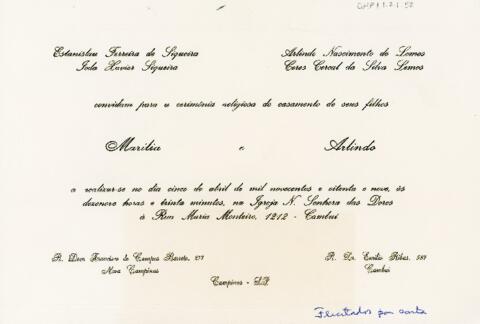 CMP 1.2.1.52
Estanislau Ferreira de Siqueira
Ieda Xavier Siqueira
Arlindo Nascimento de Lemos
Ceres Cercal da Silva Lemos
convidam para a cerimônia religiosa do casamento de seus filhos
Marilia e Arlindo
a realizar-se no dia cinco de abril de mil novecentos e oitenta e nove, às
dezenove horas e trinta minutos, na Igreja N. Senhora das Dores
à Rua Maria Monteiro, 1212 - Cambuí
R. Dom Francisco de Campos Barreto,
Nova Campinas
R. Dr. Emílio Ribas, 587
Cambuí
Campinas - S.P.
Felicitados por carta